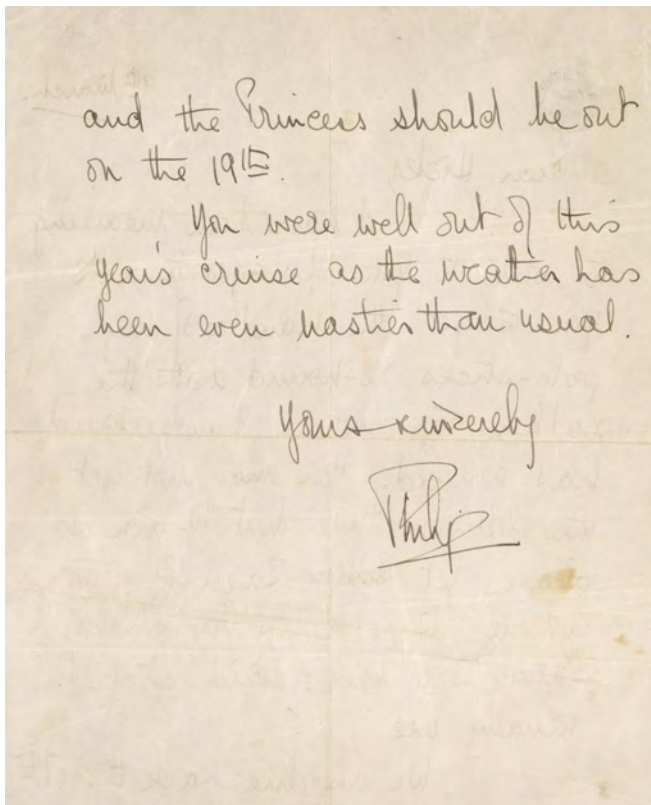 and the Princess should be out
on the 19th.
You were well out of this
year's cruise as the weather has
been even nastier than usual.
Yours sincerely
Philip